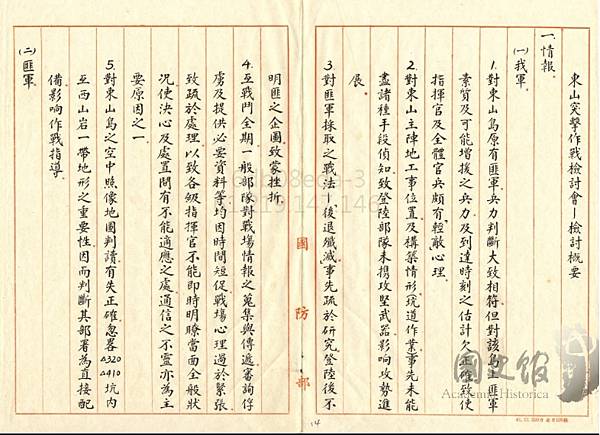 東山突擊作戰檢討會—檢討概要
一、情報
(一)我軍
1.對東山島原有匪軍兵力判斷大致相符但對該島上匪軍
素質及可能增援之兵力及到達時刻之估計欠正確致使
指揮官及全體官兵頗有「輕敵」心理.
2.對東山主陣地工事位置及構築情形(坑道作業)事先未能
盡諸種手段偵知致登陸部隊未携攻堅武器影响攻勢進
展
3.對匪軍採取之戰法—「後退殲滅」事先疏於研究登陸後不
明匪之企圖致蒙挫折.
4.在戰鬥全期一般部隊對戰場情報之蒐集與傳遞審詢俘
虜及提供必要資料等均因時間短促戰場心理過於緊張
致疏於處理以致各級指揮官不能即時明瞭當面全般狀
況使決心及處置間有不能適應之處通信之不靈亦為主
要原因之一
5.對東山島之空中照像地圖判讀有失正確忽畧△320 △410坑內
至西山岩一帶地形之重要性因而判斷其部署為直接配
備影响作戰指導.
(二)匪軍
國防部
14
國史館
Academia Historica